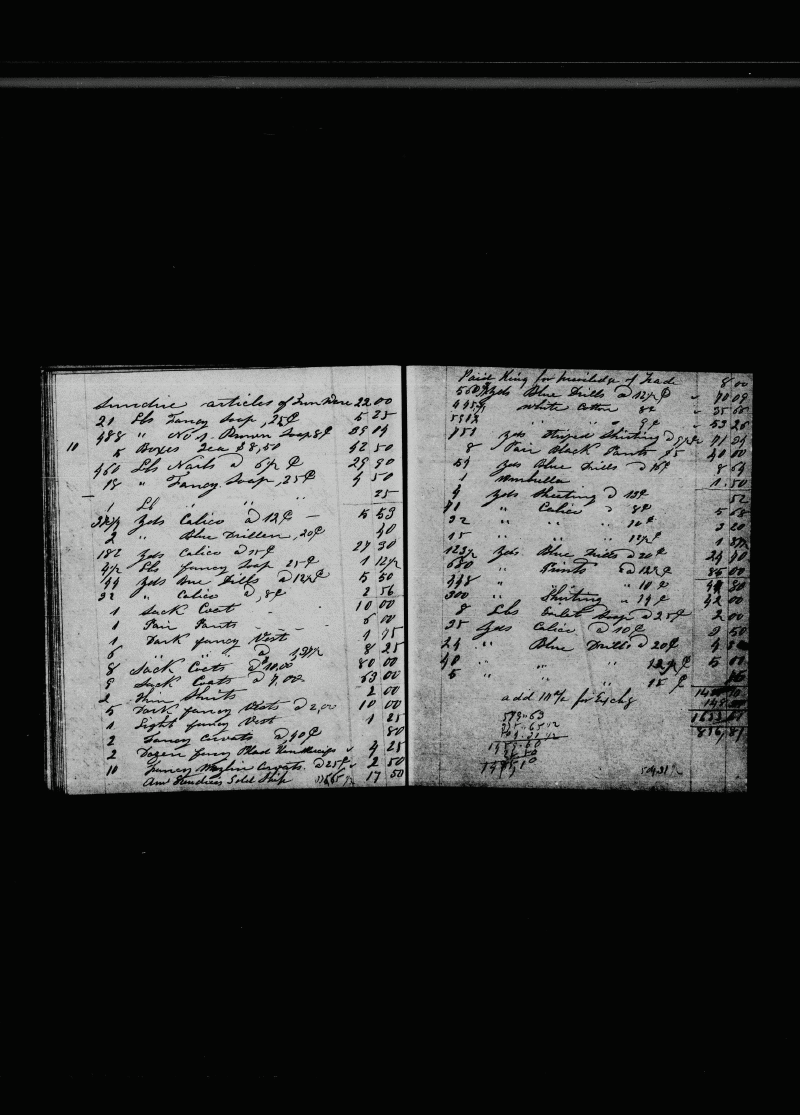 Sundrie articles of Tin Ware 22 00
21 Lbs Fancy Soap, 25¢ 5 25
488 " No 1. Brown Soap 8¢ 39 04
10 5 Boxes Tea $8,50 42 50
460 Lbs Nails a 6½ ¢ 29 90
18 " Fancy Soap, 25¢ 4 50
1 Lb " " " 25
Yds Calico a 12¢ - 5 53
2 " Blue Drillen, 20¢ 40
182 Yds Calico a 15¢ 27 30
4½ Lbs fancy Soap 25¢ 1 12½
44 Yds Blue Drills a 12½¢ 5 50
32 " Calico a, 8¢ 2 56
1 Sack Coat - - 10 00
1 Pair Pants - - - 6 00
1 Dark fancy Vest 1 75
6 " " a 1,37½ 8 25
8 Sack Coats a 10,00 80 00
9 Sack Coats a 7.00 63 00
2 Thin Shirts 2 00
5 Dark fancy Vests a 2,00 10 00
1 Light fancy Vest 1 25
2 Fancy Cravats a 40¢ 80
2 Dozen fancy Plaid Handkerchiefs 4 25
10 Fancy Muslin Cravats. a 25¢ 2 50
Am Sundries Sold Ship 17 50
Paid King for priviledge of Trade 8 00
Yds Blue Drills a 12½¢ " 70 09
White Cotton 8¢ " 35 66
" " 9¢ " 53 26
751 Yds Striped Shirting a 9½¢ 71 34
8 Pair Black Pants $5 40 00
54 Yds Blue Drills a 16¢ 8 64
1 Umbrella 1.50
4 Yds Sheeting a 13¢ 52
71 " Calico " 8¢ 5 68
32 " " " 10¢ 3 20
15 " " " 1
Yds. Blue Drills a 20¢ 24 40
680 " Prints a 12½¢ 85 00
448 " " " 10¢ 44 80
300 " Shirting " 14¢ 42 00
8 Lbs Toilet Soap a 25¢ 2 00
35 Yds Calico a 10¢ 3 50
24 " Blue Drills a 20¢ 4 80
40 " " " 12½¢ 5 00
5 " " " 15¢
add 10 % for Exchg
579.63